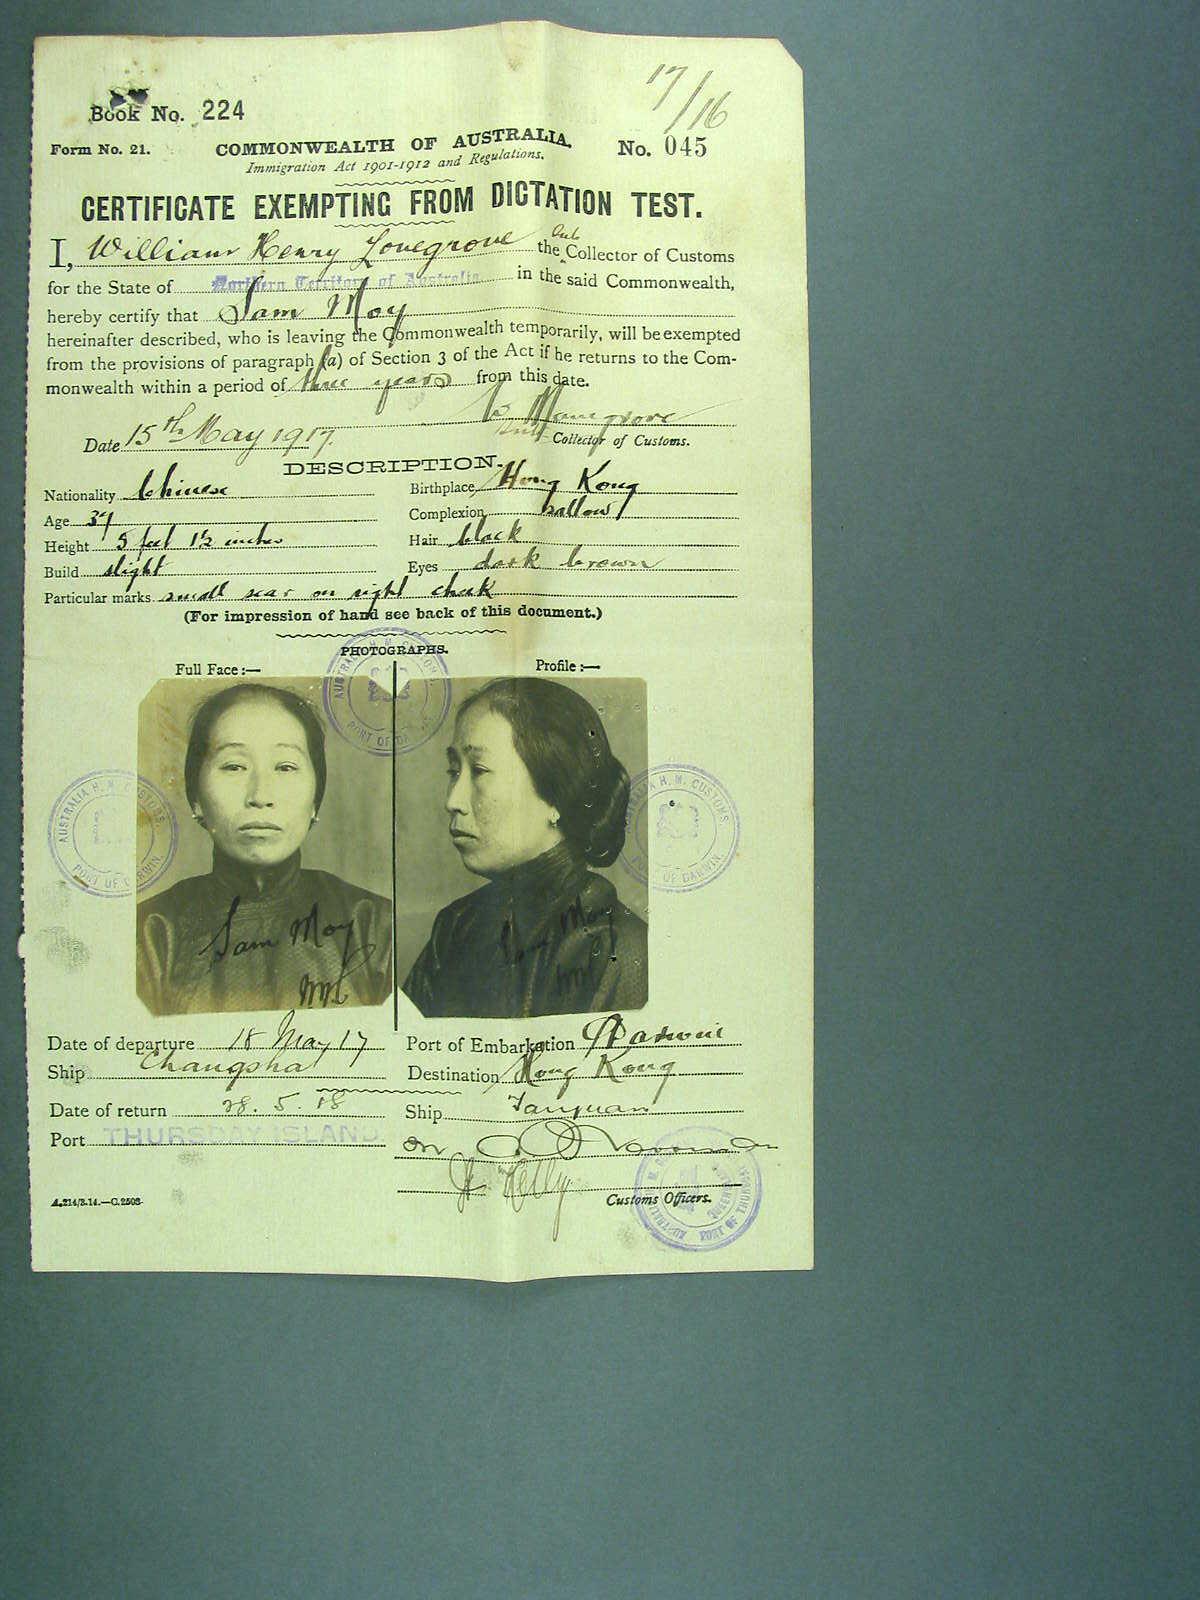 17/16
Book No. 224
Form No. 21. COMMONWEALTH OF AUSTRALIA. No. 045
Immigration Act 1901-1912 and Regulations.
CERTIFICATE EXEMPTING FROM DICTATION TEST.
I, William Henry Lovegrove the Sub Collector of Customs
for the State of Northern Territory of Australia in the said Commonwealth,
hereby certify that Sam Moy
hereinafter described, who is leaving the Commonwealth temporarily, will be exempted
from the provisions of paragraph (a) of Section 3 of the Act if he returns to the Com-
monwealth within a period of three years from this date.
W Lovegrove
Date 15th May 1917. Sub Collector of Customs.
DESCRIPTION.
Nationality Chinese Birthplace Hong Kong
Age 34 Complexion sallow
Height 5 feet 1½ inches Hair black
Build slight Eyes dark brown
Particular marks small scar on right cheek
(For impression of hand see back of this document.)
PHOTOGRAPHS.
Full Face:— Profile:—
AUSTRALIA H. M. CUSTOMS. PORT OF DARWIN.
AUSTRALIA H. M. CUSTOMS. PORT OF DARWIN.
AUSTRALIA H. M. CUSTOMS. PORT OF DARWIN.
Sam Moy Sam Moy
Date of departure 18 May 17 Port of Embarkation Darwin
Ship Changsha Destination Hong Kong
Date of return 28. 5. 18 Ship Taiyuan
Port THURSDAY ISLAND
Kelly
A.214/3.14.—C.2503. Customs Officers.
PORT OF THURSDAY